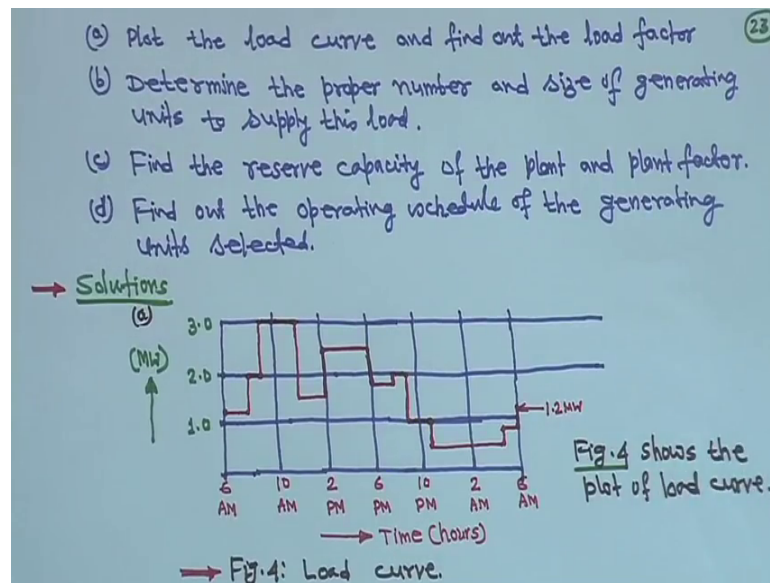 23
(a) Plot the load curve and find out the load factor
(b) Determine the proper number and size of generating
units to supply this load.
(c) Find the reserve capacity of the plant and plant factor.
(d) Find out the operating schedule of the generating
units selected.
→ Solutions
(a)
(MW)
3.0
2.0
1.0
1.2MW
6 AM
10 AM
2 PM
6 PM
10 PM
2 AM
6 AM
→ Time (hours)
Fig.4 shows the
plot of load curve.
→ Fig.4: Load curve.